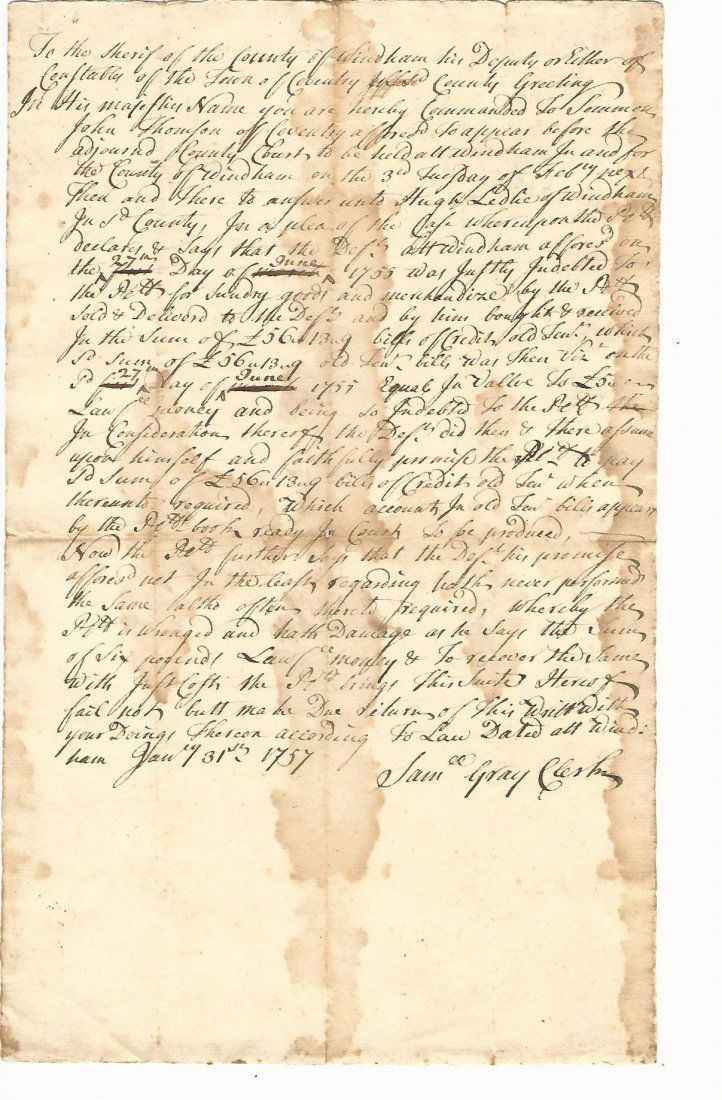 To the Sherif of the County of Windham his Deputy or Either of
Constables of the Town of Coventry County Greeting
In His majesties Name you are hereby Commanded To Sommon
John Thomson of Coventry affresd To appear before the
adjournd County Court to be held att Windham In and for
the County of Windham on the 3rd Tuesday of Febry next
Then and there to answer unto Hugh Ledlie of Windham
In sd County, In a plea of the Case whereupon the Pltt
declares & Says that the Deft att Windham afforesd on
the 27th Day of June 1755 was Justly Indebted To
the Pltt for Sundry goods and merchandize by the Pltt
Sold & Deliverd to the Deft and by him bought & received
In the Sum of £56"13"9 bills of Credit old Tenr which
sd Sum of £56"13"9 old Tenr bills was then Vizt on the
sd 27th Day of June 1755 Equal In Vallue To £5
Lawfll money and being so Indebted To the Pltt
In Consideration thereof the Deft did then & there assume
upon himself and faithfully promise the Pltt to pay
sd Sum of £56"13"9 bills of Credit old Tenr when
thereunto required, Which account In old Tenr bills appears
by the Pltts book ready In Court To be produced,
Now the Pltt further Says that the Deft his promise
afforesd not In the least regarding hath never performd
the Same altho often thereto required, whereby the
Pltt is wronged and hath Damage as he Says the Sum
of Six pounds Lawfll money & To recover the Same
with Just Costs the Pltt brings this Suite Hereof
fail not butt make Due return of this Writt with
your Doings thereon according To Law Dated att Wind:
ham Janry 31st 1757
Samll Gray Clerk